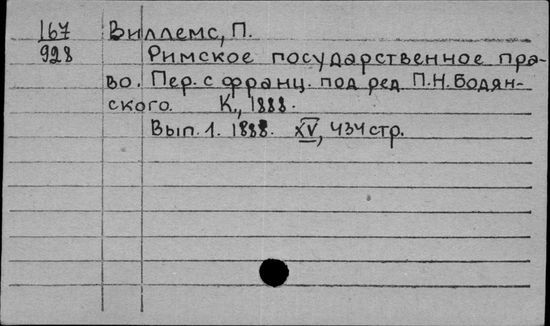 167 Виллемс, П.
928 Римское государственное пра-
во. Пер. с франц. под ред. П.Н. Бодян-
ского. К., 1888.
Вып. 1. 1888. XV, 434 стр.